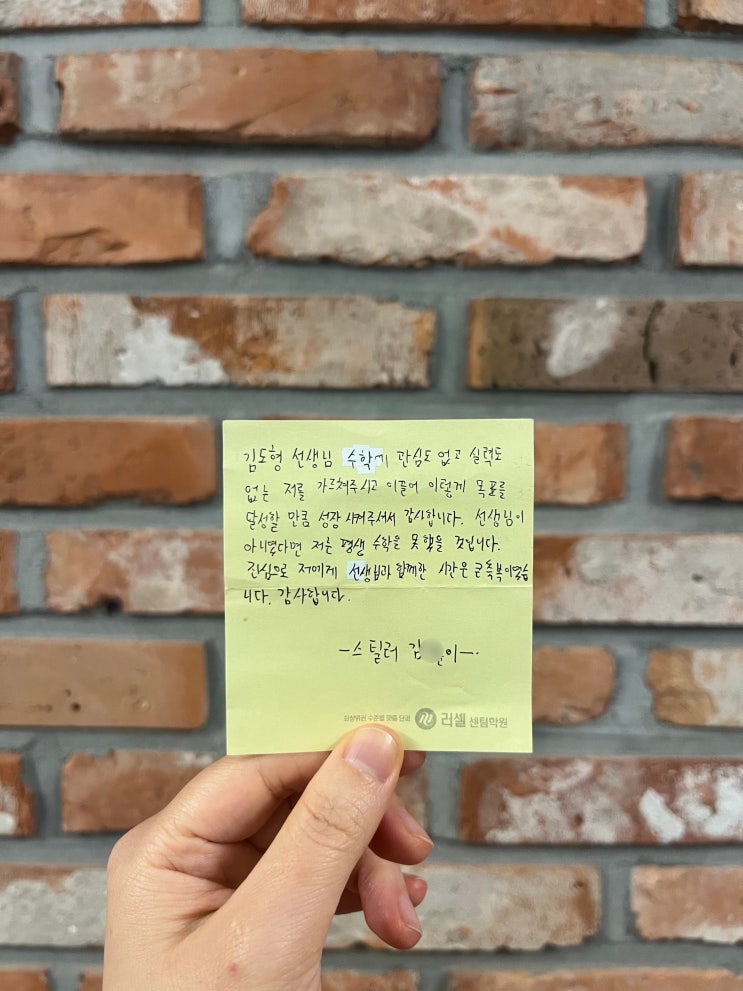 김도형 선생님 수학에 관심도 없고 실력도
없는 저를 가르쳐주시고 이끌어 이렇게 목표를
달성할 만큼 성장 시켜주셔서 감사합니다. 선생님이
아니였다면 저는 평생 수학을 못했을 것입니다.
진심으로 저에게 선생님과 함께한 시간은 큰 축복이였습
니다. 감사합니다.
-스틸러 김 이-.
최상위권 수준별 맞춤 단과 러셀 센텀학원